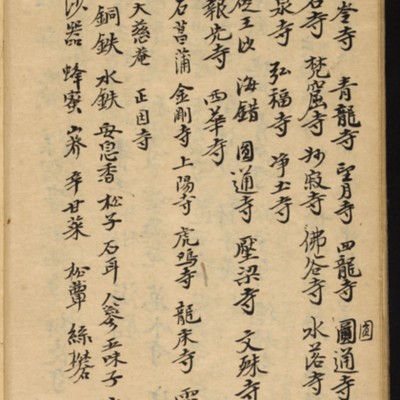 岑寺 青龍寺 聖月寺 四龍寺 圓通寺
石寺 梵窟寺 妙寂寺 佛谷寺 水落寺
泉寺 弘福寺 净土寺
海錯 圓通寺 壓梁寺 文殊寺
報先寺 西華寺
石菖蒲 金剛寺 上陽寺 虎鳴寺 龍床寺
天慈庵 正因寺
銅鉄 水鉄 安息香 松子 石耳 人參 五味子
沙器 蜂蜜 辛甘菜 松蕈 絲